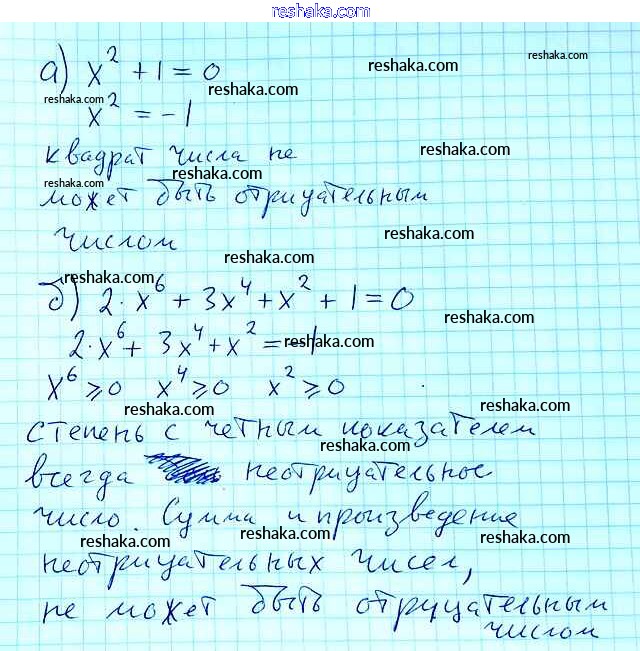 reshaka.com
а) x² + 1 = 0
reshaka.com
reshaka.com
reshaka.com
reshaka.com
x² = -1
reshaka.com
квадрат числа не
reshaka.com
reshaka.com
может быть отрицательным
reshaka.com
числом
reshaka.com
reshaka.com
б) 2·x⁶ + 3x⁴ + x² + 1 = 0
reshaka.com
2·x⁶ + 3x⁴ + x² = -1
reshaka.com
x⁶ ≥ 0 x⁴ ≥ 0 x² ≥ 0
reshaka.com
reshaka.com
степень с четным показателем
reshaka.com
всегда неотрицательное
reshaka.com
число. Сумма и произведение
reshaka.com
reshaka.com
reshaka.com
неотрицательных чисел,
reshaka.com
не может быть отрицательным
reshaka.com
числом
reshaka.com